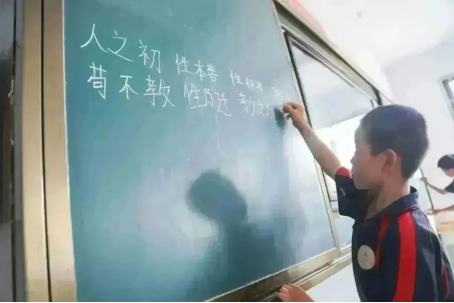 人之初 性本善 性相
苟不教 性乃迁 教之